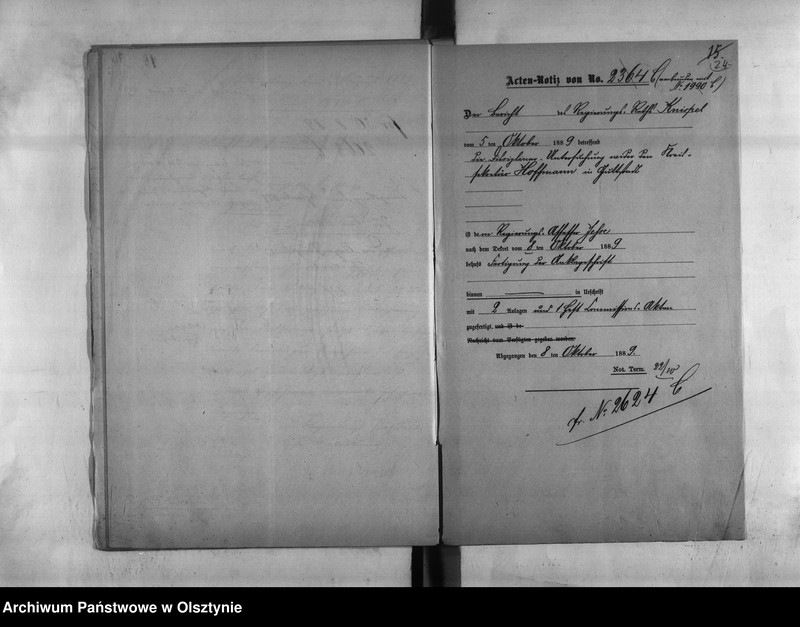 15
24
Acten-Notiz von No. 2364 C (verbunden mit
No 1990 C)
Der Bericht des Regierungs-Raths Knispel
vom 5 ten Oktober 1889 betreffend
die Disciplinar-Untersuchung wider den Kreis-
sekretär Hoffmann in Guttstadt
ist de m Regierungs-Assessor
nach dem Dekret vom 8 ten Oktober 1889
behufs Fertigung der Anklageschrift
binnen in Urschrift
mit 2 Anlagen und 1 Heft Commissions-Akten
zugefertigt, und ist de
Nachricht vom Verfügten gegeben worden.
Abgegangen den 8 ten Oktober 1889.
Not. Term. 22/10
fr. No 2624 C
Archiwum Państwowe w Olsztynie